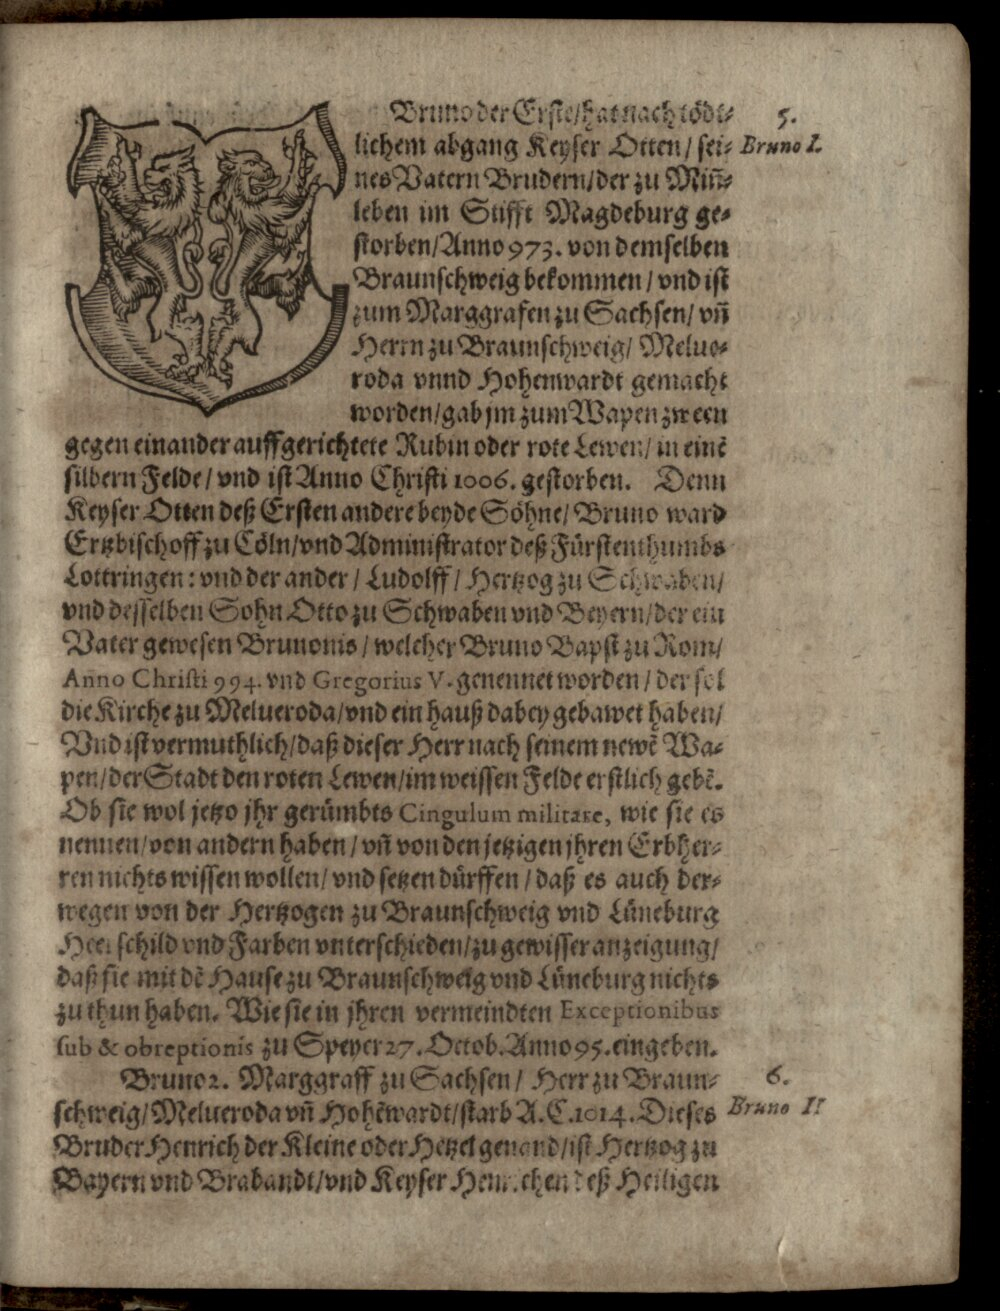 Bruno der Erste/hat nach tödt-
5.
lichem abgang Keyser Otten/ sei-
Bruno I.
nes Vatern Brudern/der zu Miñ-
leben im Stifft Magdeburg ge-
storben/Anno 973. von demselben
Braunschweig bekommen/ vnd ist
zum Marggrafen zu Sachsen/ vñ
Herrn zu Braunschweig/ Melue-
roda vnnd Hohenwardt gemacht
worden/gab jm zum Wapen zween
gegen einander auffgerichtete Rubin oder rote Lewen/ in einẽ
silbern Felde/ vnd ist Anno Christi 1006. gestorben. Denn
Keyser Otten deß Ersten andere beyde Söhne/ Bruno ward
Ertzbischoff zu Cöln/vnd Administrator deß Fürstenthumbs
Lottringen: vnd der ander/ Ludolff/ Hertzog zu Schwaben/
vnd desselben Sohn Otto zu Schwaben vnd Beyern/der ein
Vater gewesen Brunonis/ welcher Bruno Bapst zu Rom/
Anno Christi 994. vnd Gregorius V. genennet worden/ der sol
die Kirche zu Melueroda/vnd ein hauß dabey gebawet haben/
Vnd ist vermuthlich/daß dieser Herr nach seinem newẽ Wa-
pen/der Stadt den roten Lewen/im weissen Felde erstlich gebẽ.
Ob sie wol jetzo jhr gerümbts Cingulum militare, wie sie es
nennen/von andern haben/ vñ von den jetzigen jhren Erbher-
ren nichts wissen wollen/ vnd setzen dürffen/ daß es auch der-
wegen von der Hertzogen zu Braunschweig vnd Lüneburg
Heerschild vnd Farben vnterschieden/zu gewisser anzeigung/
daß sie mit dẽ Hause zu Braunschweig vnd Lüneburg nichts
zu thun haben. Wie sie in jhren vermeindten Exceptionibus
sub & obreptionis zu Speyer 27. Octob. Anno 95. eingeben.
Bruno 2. Marggraff zu Sachsen/ Herr zu Braun-
6.
schweig/Melueroda vñ Hohẽwardt/starb A.C.1014. Dieses
Bruno II
Bruder Henrich der Kleine oder Hetzel genand/ist Hertzog zu
Bayern vnd Brabandt/vnd Keyser Henrichen deß Heiligen